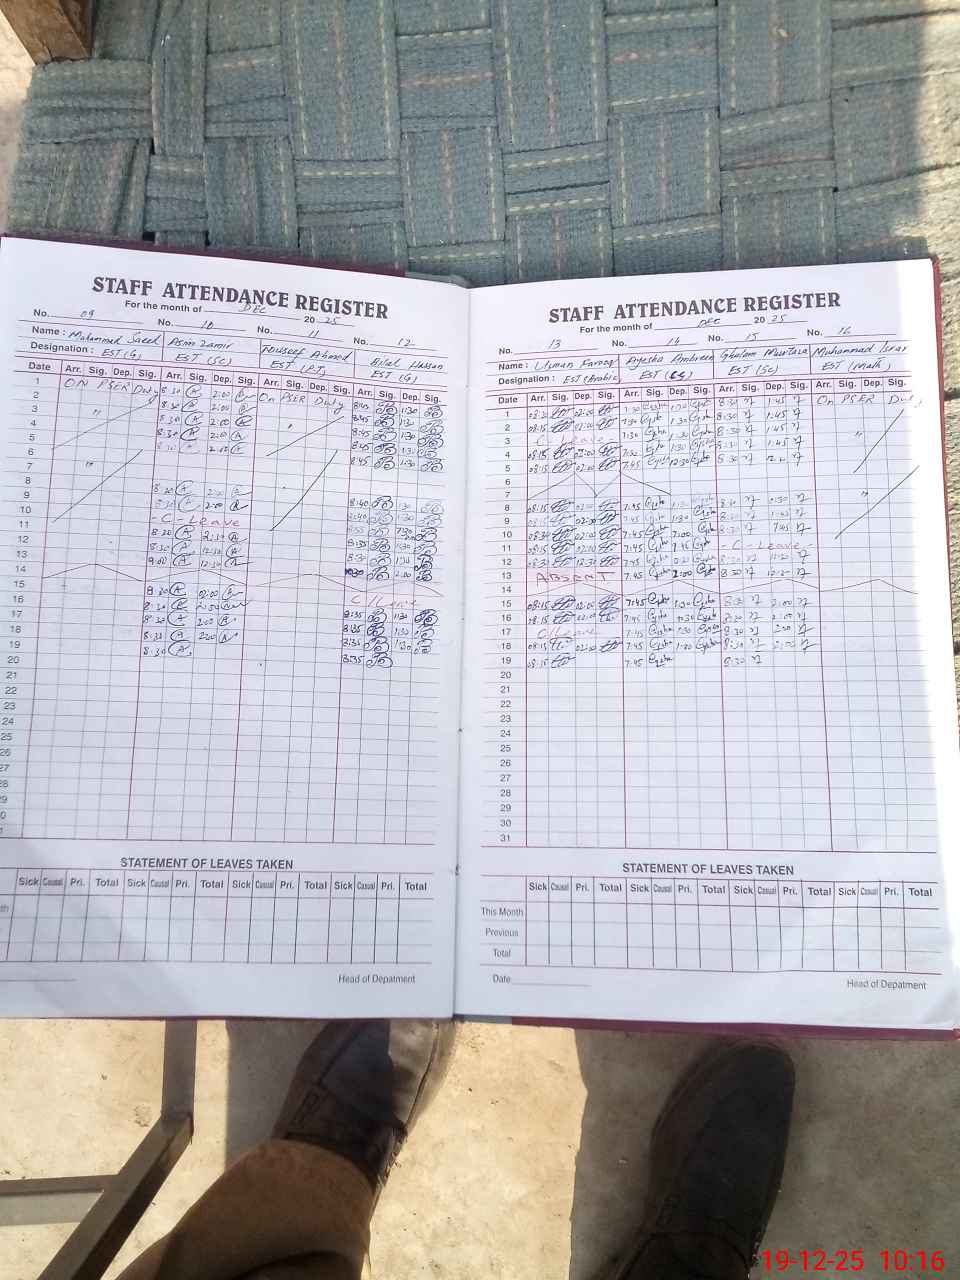 STAFF ATTENDANCE REGISTER
For the month of DEC 20 25
No. 09 No. 10 No. 11 No. 12
Name : Muhammad Saeed Asim Zamir Touseef Ahmed Bilal Hassan
Designation : EST (G) EST (SC) EST (PT) EST (G)
Date Arr. Sig. Dep. Sig. Arr. Sig. Dep. Sig. Arr. Sig. Dep. Sig. Arr. Sig. Dep. Sig.
1 ON PSER Duty 8:30 2:00 On PSER Duty 8:45 1:30
2 8:30 2:00 8:45 1:30
3 " 8:30 2:00 " 8:45 1:30
4 8:30 2:00 8:45 1:30
5 2:00 8:45 1:30
6
7 "
8 8:30 2:00 8:40 1:30
9 8:30 2:00 1:30
10 - C - Leave
11 8:30 2:30 8:35 1:30
12 8:30 12:30 8:30 1:30
13 9:00 12:30 2:00
14
15 8:30 02:00 C/Leave
16 8:30 2:00 8:35 1:30
17 8:30 2:00 8:35 1:30
18 8:30 2:00 8:35 1:30
19 8:30 8:35
20
21
22
23
24
25
26
27
28
29
30
31
STATEMENT OF LEAVES TAKEN
Sick Casual Pri. Total Sick Casual Pri. Total Sick Casual Pri. Total Sick Casual Pri. Total
Head of Depatment
STAFF ATTENDANCE REGISTER
For the month of DEC 20 25
No. 13 No. 14 No. 15 No. 16
Name : Usman Farooq Ayesha Ambreen Ghulam Murtaza Muhammad Israr
Designation : EST (Arabic) EST EST (SC) EST (Math)
Date Arr. Sig. Dep. Sig. Arr. Sig. Dep. Sig. Arr. Sig. Dep. Sig. Arr. Sig. Dep. Sig.
1 08:30 02:00 7:30 1:30 8:30 1:45 On PSER Duty
2 08:15 02:00 7:30 1:30 8:30 1:45
3 C - Leave 7:30 1:30 8:30 1:45 "
4 08:15 02:00 1:30 8:30 1:45
5 08:15 02:00 7:45 12:30 8:30
6
7 "
8 08:15 02:00 7:45 8:30
9 08:15 02:00 7:45 1:30 8:30 1:45
10 08:30 02:00 7:45 2:00 8:30 1:45
11 08:15 02:00 7:45 1:45 - C - Leave -
12 08:30 12:30 7:45 8:30 12:20
13 ABSENT 7:45 2:00 8:30 12:20
14
15 08:15 02:00 7:45 1:30 8:30 2:00
16 08:15 02:00 7:45 1:30 8:30 2:00
17 C/Leave 7:45 1:30 8:30 2:00
18 08:15 02:00 7:45 1:30 8:30 2:00
19 08:15 7:45 8:30
20
21
22
23
24
25
26
27
28
29
30
31
STATEMENT OF LEAVES TAKEN
Sick Casual Pri. Total Sick Casual Pri. Total Sick Casual Pri. Total Sick Casual Pri. Total
This Month
Previous
Total
Date
Head of Depatment
19-12-25 10:16